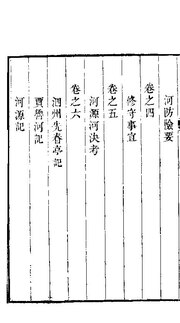 河防險要
卷之四
修守事宜
卷之五
河源河決考
卷之六
泗州先春亭記
賈魯河記
河源記